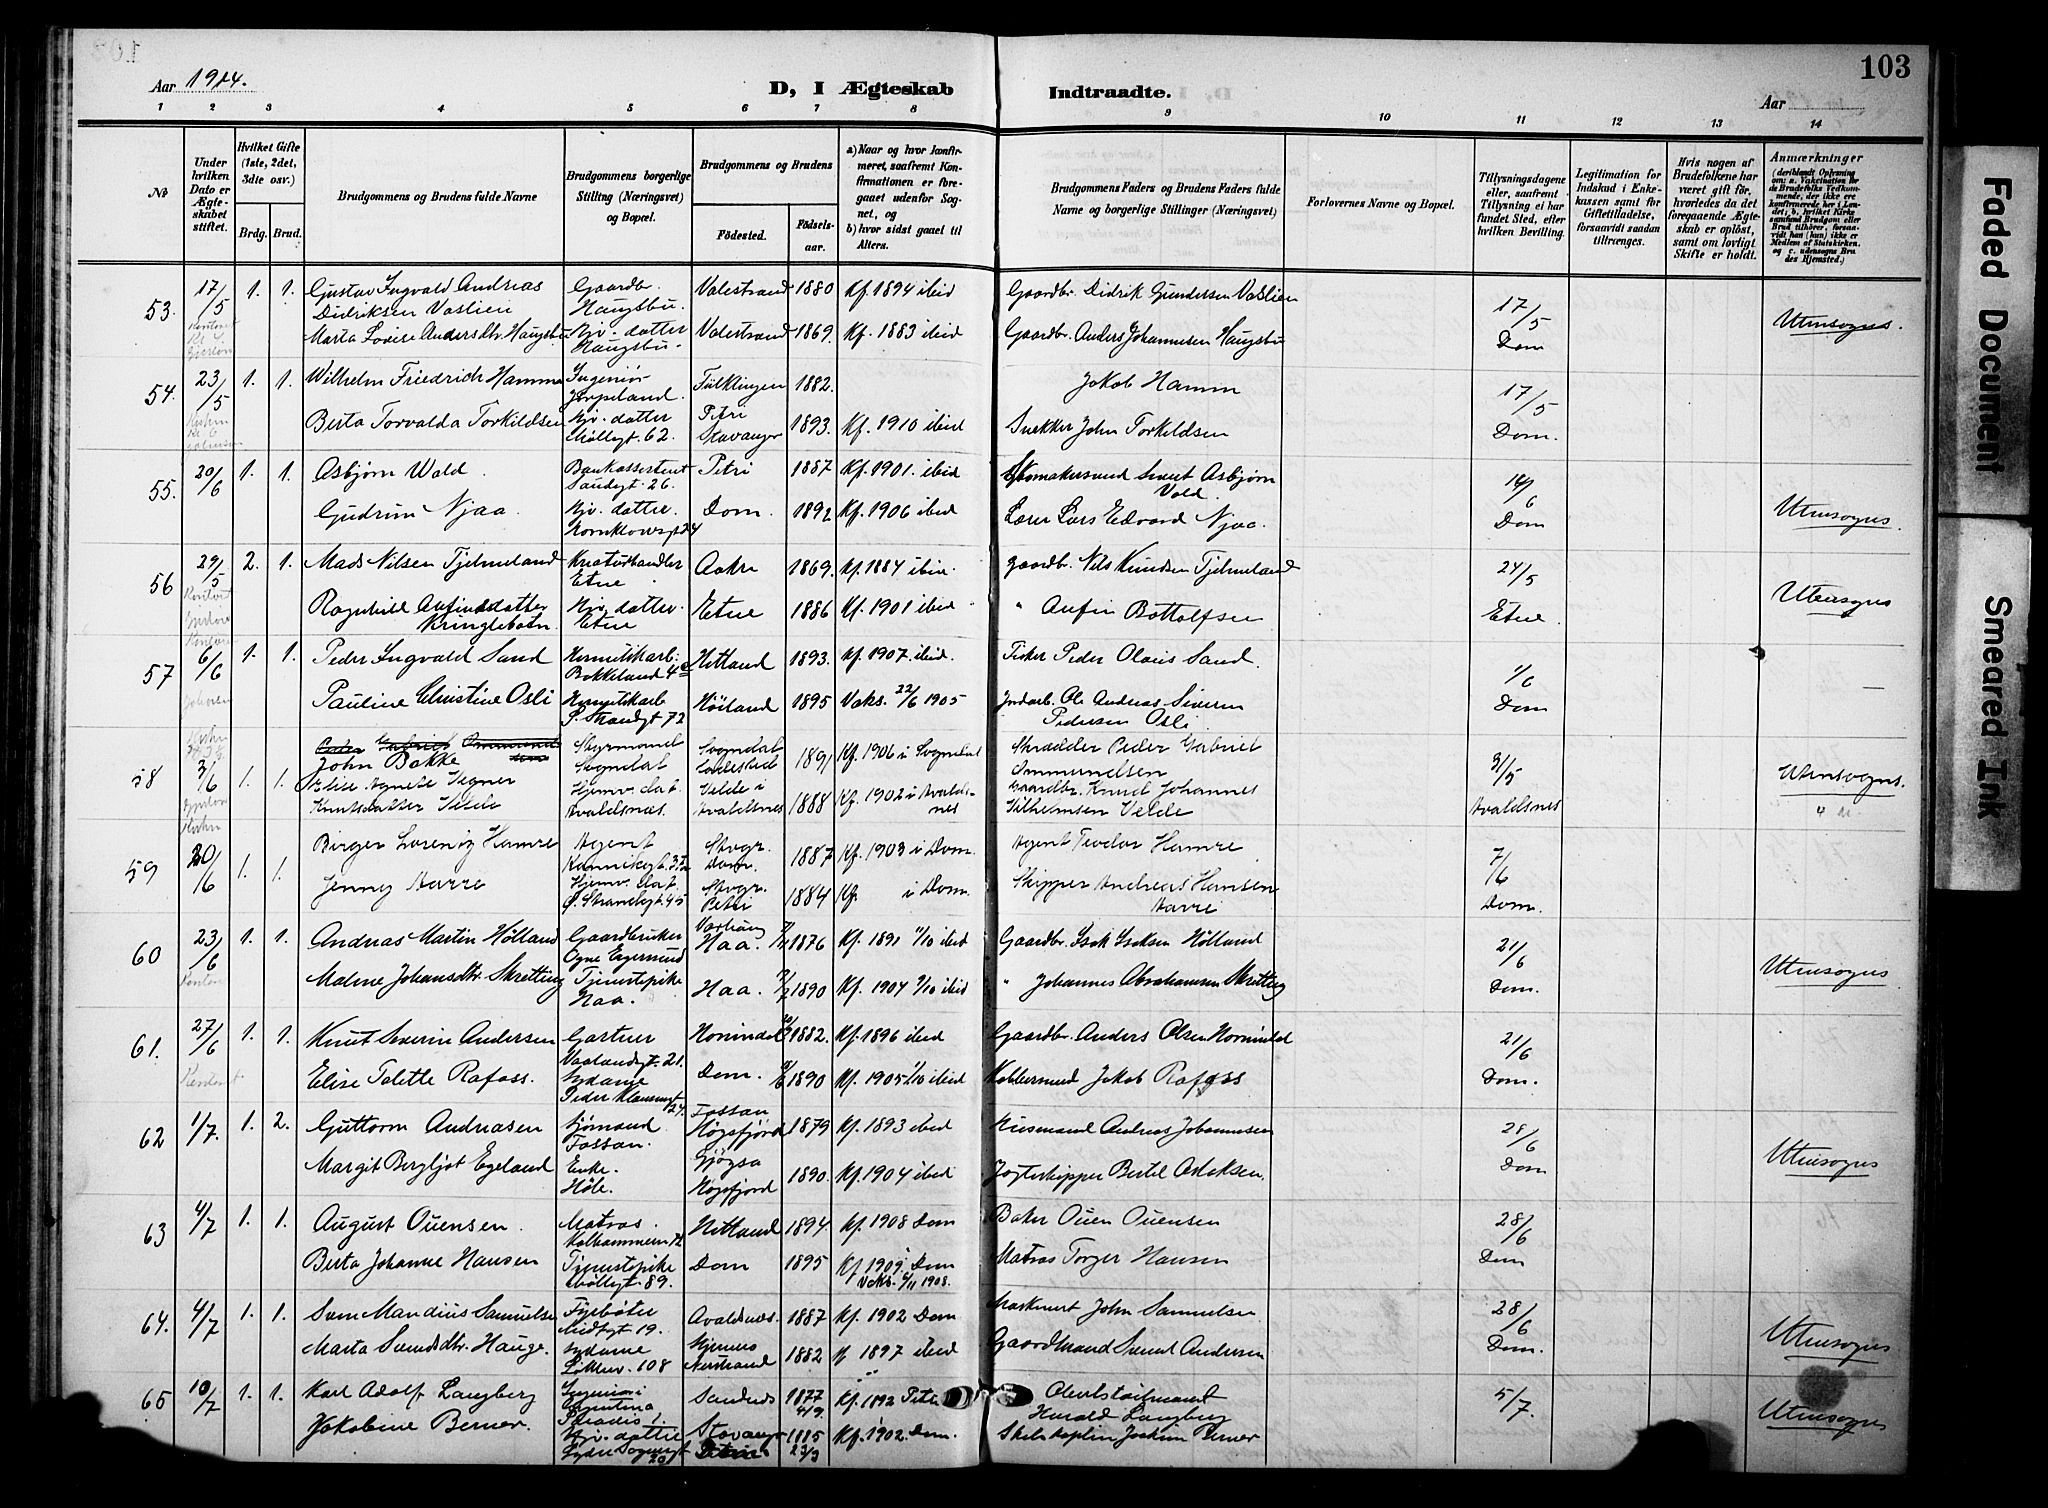 103
Aar 1914.
D, I Ægteskab Indtraadte.
Aar
1 2 3 4 5 6 7 8 9 10 11 12 13 14
№
Under hvilken Dato er Ægteskabet stiftet.
Hvilket Gifte (1ste, 2det, 3die osv.)
Brdg. Brud.
Brudgommens og Brudens fulde Navne
Brudgommens borgerlige Stilling (Næringsvei) og Bopæl.
Brudgommens og Brudens
Fødested. Fødselsaar.
a) Naar og hvor konfirmeret, saafremt Konfirmationen er foregaaet udenfor Sognet, og
b) hvor sidst gaaet til Alters.
Brudgommens Faders og Brudens Faders fulde Navne og borgerlige Stillinger (Næringsvei)
Forlovernes Navne og Bopæl.
Tillysningsdagene eller, saafremt Tillysning ei har fundet Sted, efter hvilken Bevilling.
Legitimation for Indskud i Enkekassen samt for Giftetilladelse, forsaavidt saadan tiltrænges.
Hvis nogen af Brudefolkene har været gift før, hvorledes da det foregaaende Ægteskab er opløst, samt om lovligt Skifte er holdt.
Anmærkninger
53. 17/5 1. 1. Gustav Ingvald Andreas Didriksen Vaslien Gaardbr. Haugsbu. Valestrand 1880 Kf. 1894 ibid Gaardbr. Didrik Gundersen Vaslien 17/5 Dom Utensogns.
Marta Lovise Andersdtr. Haugsbu Hjv. datter Haugsbu. Valestrand 1869. Kf. 1883 ibid Gaardbr. Anders Johannesen Haugsbu
54. 23/5 1. 1. Wilhelm Friedrich Hamm Ingeniør Jørpeland. 1882. Jakob Hamm 17/5 Dom.
Berta Torvalda Torkildsen Hjv. datter 62. Petri Stavanger 1893. Kf. 1910 ibid Snekker John Torkildsen
55. 20/6 1. 1. Asbjørn Wold. Bankassistent Sandsgt. 26. Petri 1887 Kf. 1901. ibid Svent Asbjørn Vold. 14/6 Dom Utensogns.
Gudrun Njaa. Hjv. datter. Dom. 1892 Kf. 1906 ibid Lærer Lars Edvard Njaa.
56 29/5 2. 1. Mads Nilsen Tjelmeland Kreaturhandler Etne Aakre 1869. Kf. 1884 ibid. Gaardbr. Nils Knudsen Tjelmeland 24/5 Etne Utensogns
Ragnhild Anfinsdatter Kringlebotn. Hjv. datter. Etne Etne 1886 Kf. 1901 ibid " Anfin Bottolfsen
57 6/6 1. 1. Peder Ingvald Sand Hermetikarb. Bakkeland 4 Hetland 1893. Kf. 1907. ibid. Fisker Peder Olaus Sand. 1/6 Dom —
Pauline Christine Osli Hermetikarb P. Strandgt 72 Høiland 1895 Vaks. 22/6 1905 Jndarb. Ole Andreas Severin Pedersen Osli
58 3/6 1. 1. John Bakke Styrmand Sogndal Sogndal 1891 Kf. 1906 i Sogndal Skrædder Peder Gabriel Ommundsen 31/5 Avaldsnes Utensogns.
Elise Agnete Vegner Knutsdatter Velde Hjemv. dat. Avaldsnes. Velde i Avaldsnes 1888 Kf. 1902 i Avaldsnes Gaardbr. Knud Johannes Vilhelmsen Velde
59 20/6 1. 1. Birger Lorentz Hamre Agent Kannikegt. 37 Stvgr. Dom. 1887 Kf. 1903 i Dom. Agent Teodor Hamre 7/6 Dom.
Jenny Aarre Hjemv. dat. Ø. Strandgt. 45 Stvgr. Petri 1884 Kf. i Dom. Skipper Andreas Hansen Aarre
60 23/6 1. 1. Andreas Martin Hølland Gaardbruker Ogne Egersund Varhaug Haa. 1876 Kf. 1891 11/10 ibid Gaardbr. Isak Isaksen Hølland 21/6 Dom. Utensogns
Malene Johansdtr. Skretting Tjenestepike Haa. Haa. 1890 Kf. 1904 9/10 ibid " Johannes Abrahamsen Skretting
61. 27/6 1. 1. Knut Severin Andersen Gartner 21. Hornindal 1882. Kf. 1896 ibid Gaardbr. Anders Olsen Hornindal 21/6 Dom.
Elise Tolette Rafoss. Sydame Peder Klausensgt 24. Dom. 1890 Kf. 1905 1/10 ibid Kobbersmed Jakob Rafoss
62 1/7. 1. 2. Guttorm Andreasen Sjømand Fossan. Fossan Høgsfjord 1879 Kf. 1893 ibid Husmand Andreas Johannesen 28/6 Dom Utensogns
Margit Bergljot Egeland Enke. Høle. Gjøgsa Høgsfjord 1890. Kf. 1904 ibid Jagteskipper Bertel Aslaksen.
63 4/7 1. 1. August Ouensen. Matros. Kalhammeren 12 Hetland 1894 Kf. 1908 Dom Baker Ouen Ouensen 28/6 Dom
Berta Johanne Hansen Tjenestepike 89. Dom 1895 Kf 1909 i Dom Vaks. 6/11 1908. Matros Torger Hansen
64. 4/7 1. 1. Sven Mandius Samuelsen Fyrbøter 19. Avaldsnes. 1887 Kf. 1902 Dom John Samuelsen 28/6 Dom. Utensogns
Marta Svendsdtr. Hauge. Sydame 108 Hjemnes Nerstrand 1882 Kf 1897 ibid Gaardmand Svend Andersen
65 10/7 1. 1. Karl Adolf Langberg Ingeniør i Argentina Paradis 1. Sandnes 1877 4/9. Kf. 1892 Petri Harald Langberg 5/7. Utensogns
Jakobine Berner. Hjv. datter 20 Stavanger 1885 23/3 Kf. 1902. Dom. Skibskaptein Joakim Berner
Faded Document
Smeared Ink